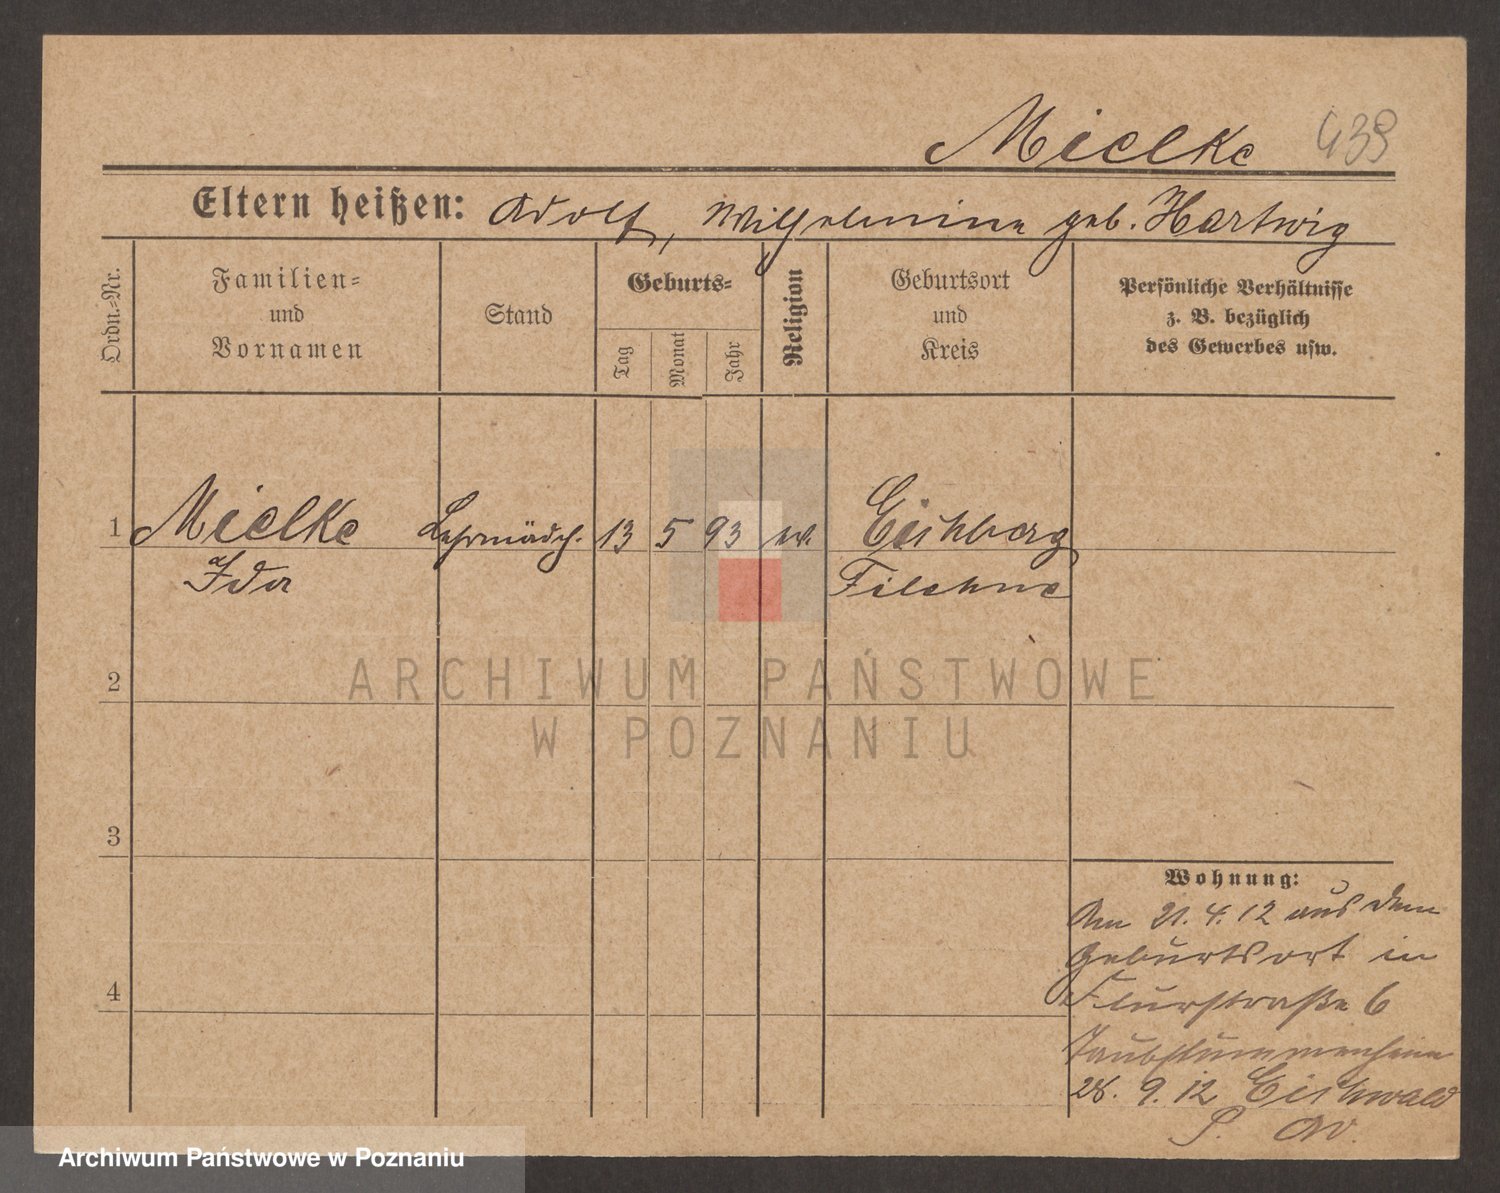 Mielke 439
Eltern heißen: Adolf, Wilhelmine geb. Hartwig
Ordn.-Nr.
Familien-
und
Vornamen
Stand
Geburts-
Tag
Monat
Jahr
Religion
Geburtsort
und
Kreis
Persönliche Verhältnisse
z. B. bezüglich
des Gewerbes usw.
1 Mielke Lehrmädch. 13 5 93 ev. Eichberg
Ida Filehne
ARCHIWUM PAŃSTWOWE
W POZNANIU
2
3
4
Wohnung:
Am 21.4.12 aus dem
Geburtsort in
Flurstraße 6
Taubstummenheim
28. 9. 12 Eichwald
Archiwum Państwowe w Poznaniu